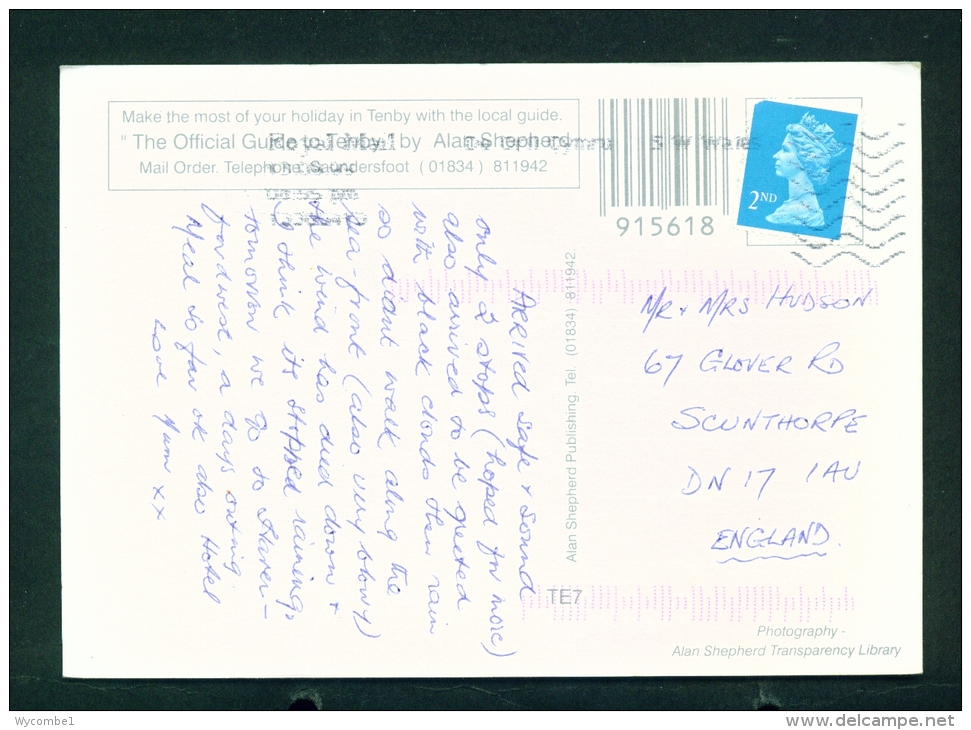 Make the most of your holiday in Tenby with the local guide.
" The Official Guide to Tenby " by Alan Shepherd
Mail Order. Telephone: Saundersfoot ( 01834 ) 811942
Royal Mail
De Cymru S W Wales
915618
2ND
Arrived safe & sound
only 2 stops (hoped for more)
also arrived to be greeted
with black clouds then rain
so didnt walk along the
sea-front (also very blowy)
the wind has died down &
I think its stopped raining,
tomorrow we go to Haver-
fordwest, a days outing
Meal so far ok also Hotel
Love Mum xx
Alan Shepherd Publishing. Tel. (01834) 811942
MR & MRS HUDSON
67 GLOVER RD
SCUNTHORPE
DN 17 1AU
ENGLAND.
TE7
Photography -
Alan Shepherd Transparency Library
Wycombe1
delcampe.net